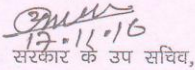 17.11.10
सरकार के उप सचिव,